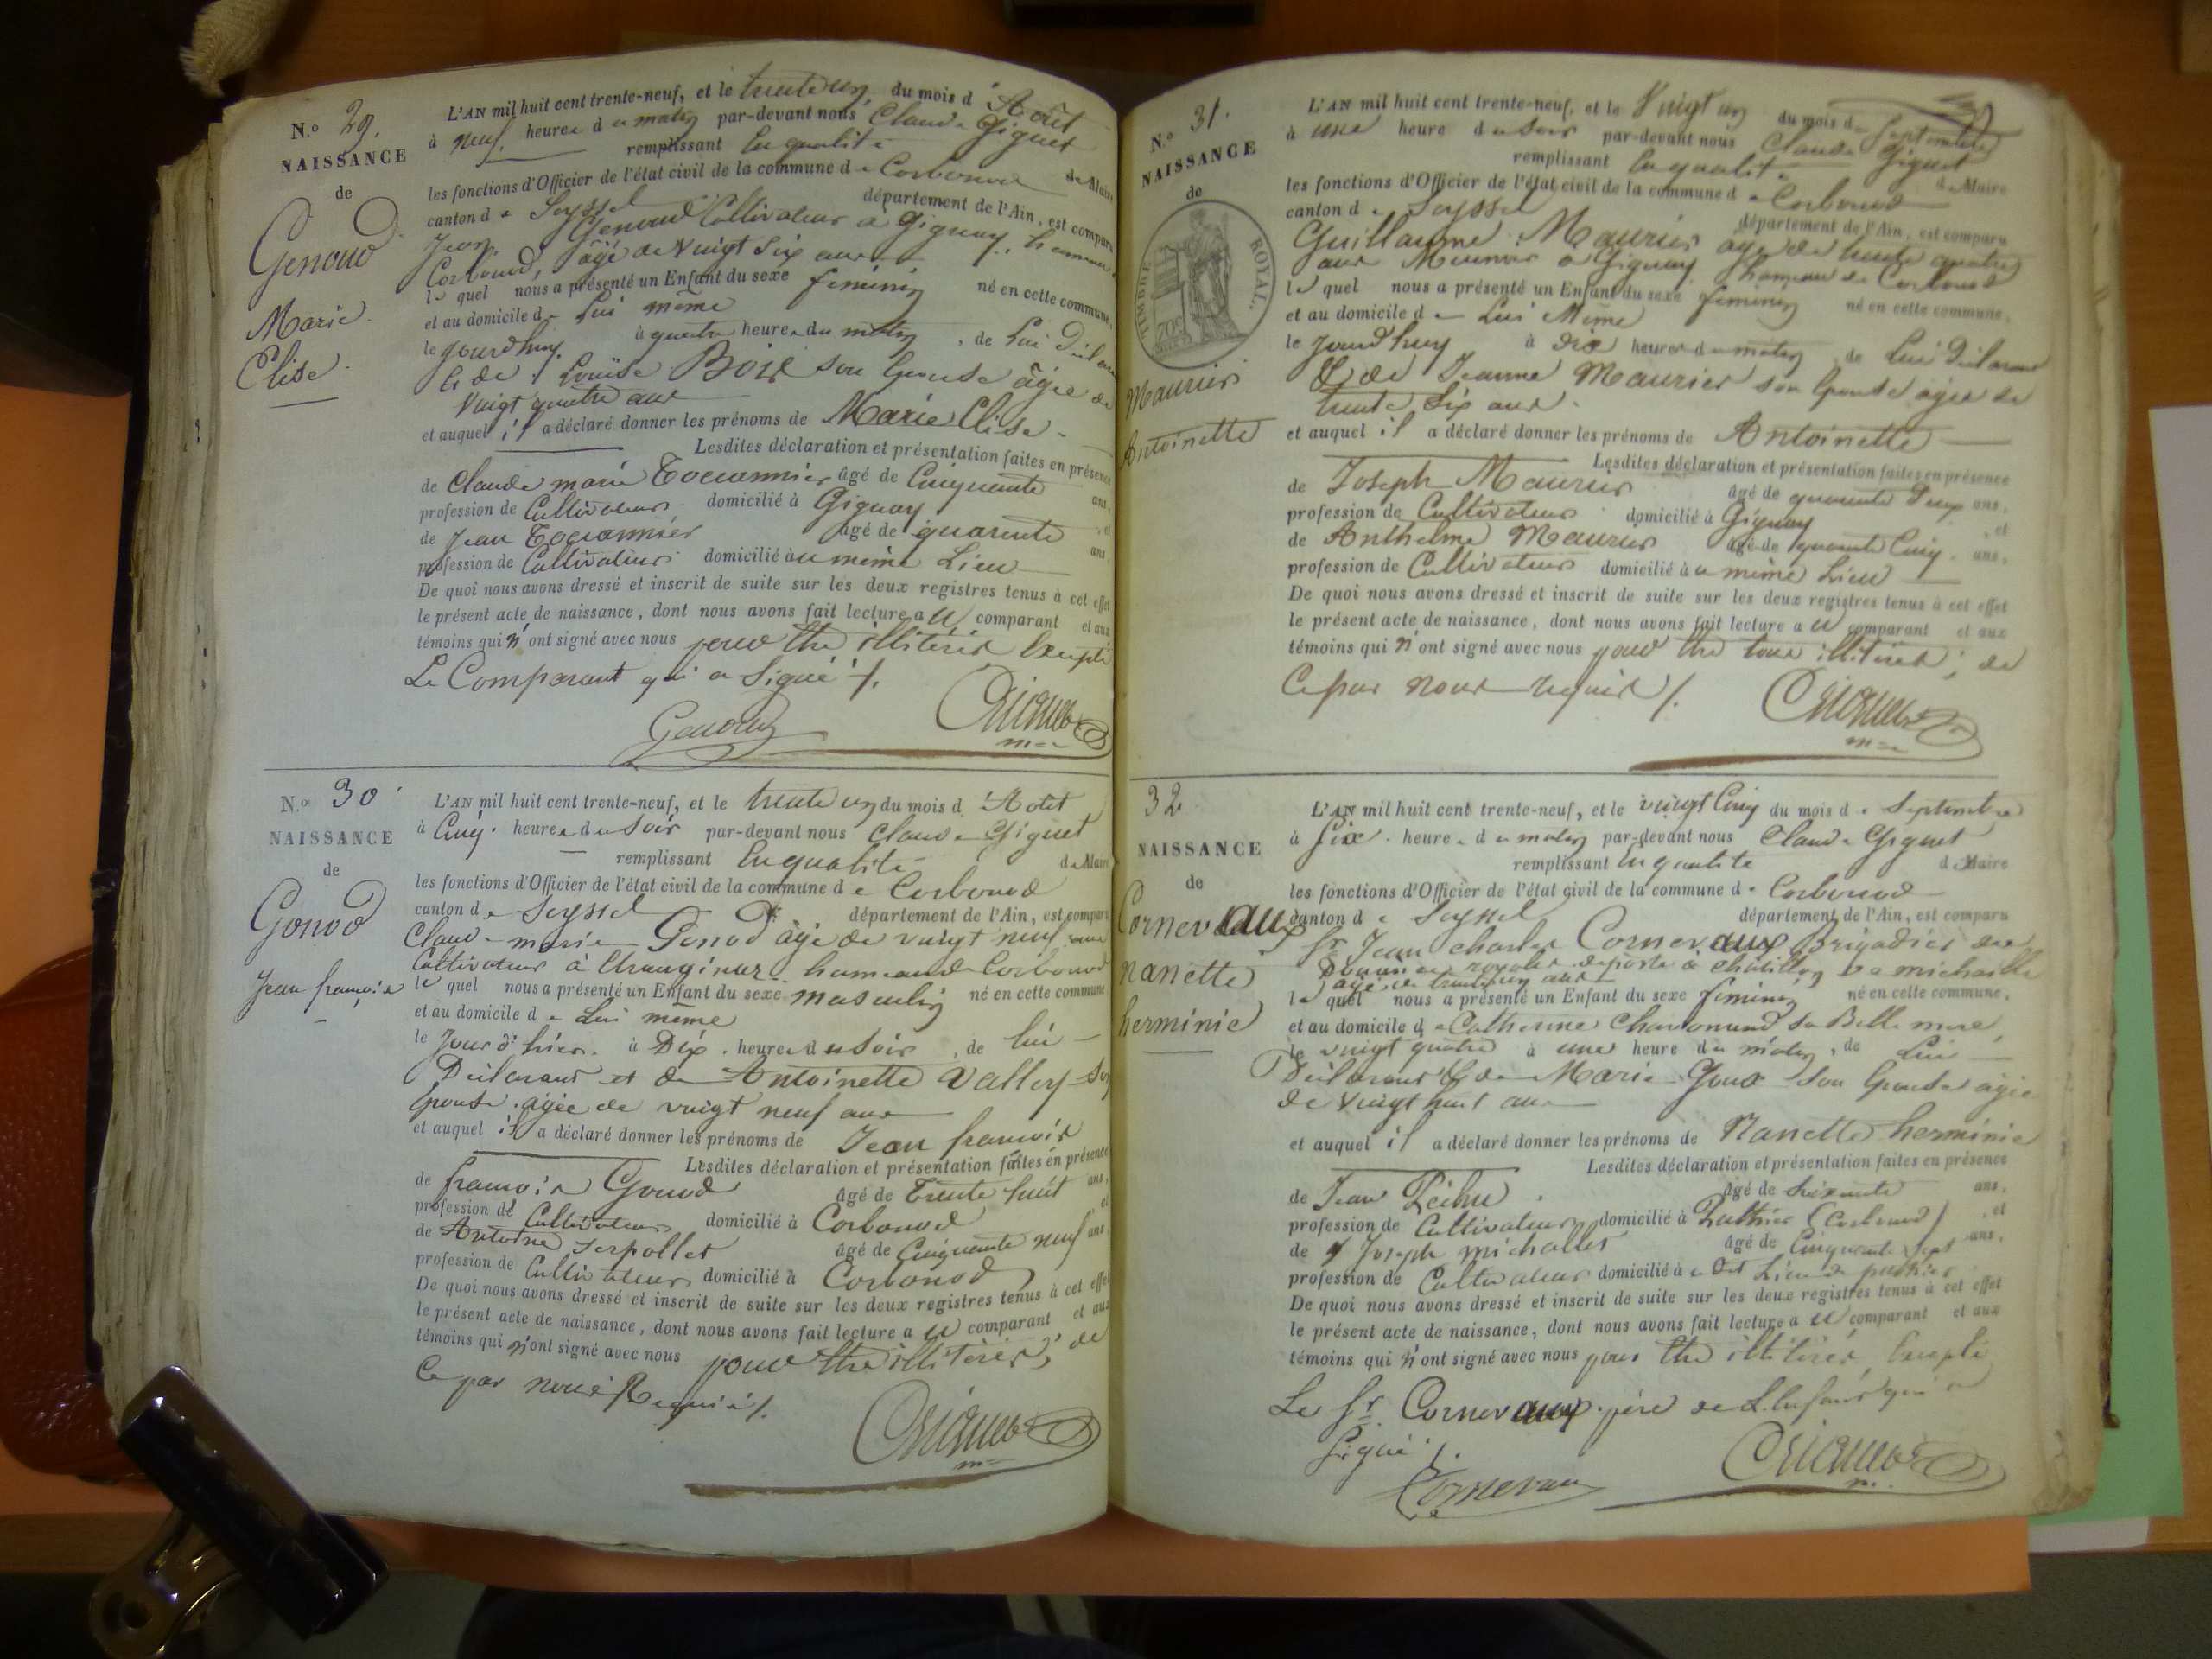 N.o 29.
NAISSANCE
de
Genoud
Marie
Elise
L'AN mil huit cent trente-neuf, et le trente un du mois d'Août
à neuf heures du matin par-devant nous Claude Giguet
remplissant En qualité de Maire
les fonctions d'Officier de l'état civil de la commune de Corbonod
canton de Seyssel département de l'Ain, est comparu
Jean Genoud Cultivateur à Gignay, hameau de
Corbonod, âgé de vingt six ans
lequel nous a présenté un Enfant du sexe féminin né en cette commune,
et au domicile de Lui même
le jourdhuy à quatre heures du matin, de Lui Déclarant
Et de Louise Bois son Epouse âgée de
vingt quatre ans
et auquel il a déclaré donner les prénoms de Marie Elise
Lesdites déclaration et présentation faites en présence
de Claude marie âgé de Cinquante ans,
profession de Cultivateur domicilié à Gignay, et
de Jean âgé de quarente ans,
profession de Cultivateur domicilié au même Lieu
De quoi nous avons dressé et inscrit de suite sur les deux registres tenus à cet effet
le présent acte de naissance, dont nous avons fait lecture au comparant et aux
témoins qui n'ont signé avec nous pour être illitérés Excepté
Le Comparant qui a Signé /.
Genoud
Giguet
N.o 30
NAISSANCE
de
Gonod
Jean françois
L'AN mil huit cent trente-neuf, et le trente un du mois d'Août
à Cinq heures du Soir par-devant nous Claude Giguet
remplissant En qualité de Maire
les fonctions d'Officier de l'état civil de la commune de Corbonod
canton de Seyssel département de l'Ain, est comparu
Claude marie Gonod âgé de vingt neuf ans
Cultivateur à hameau de Corbonod
lequel nous a présenté un Enfant du sexe masculin né en cette commune
et au domicile de Lui même
le Jour d'hier à Dix heures du Soir, de lui
Déclarant et de Antoinette Vallery son
Epouse âgée de vingt neuf ans
et auquel il a déclaré donner les prénoms de Jean françois
Lesdites déclaration et présentation faites en présence
de françois Gonod âgé de Trente huit ans,
profession de Cultivateur domicilié à Corbonod et
de Antoine Serpollet âgé de Cinquante neuf ans,
profession de Cultivateur domicilié à Corbonod
De quoi nous avons dressé et inscrit de suite sur les deux registres tenus à cet effet
le présent acte de naissance, dont nous avons fait lecture au comparant et aux
témoins qui n'ont signé avec nous pour être illitérés, de
Ce par nous Requis /.
Giguet
N.o 31.
NAISSANCE
de
TIMBRE ROYAL.
Maurier
Antoinette
L'AN mil huit cent trente-neuf, et le Vingt un du mois de Septembre
à une heure du soir par-devant nous Claude Giguet
remplissant En qualité de Maire
les fonctions d'Officier de l'état civil de la commune de Corbonod
canton de Seyssel département de l'Ain, est comparu
Guillaume Maurier âgé de trente quatre
ans Meunier à Gignay hameau de Corbonod
lequel nous a présenté un Enfant du sexe féminin né en cette commune,
et au domicile de Lui Même
le jourdhuy à dix heures du matin, de Lui Déclarant
Et de Jeanne Maurier son Epouse âgée de
trente Six ans
et auquel il a déclaré donner les prénoms de Antoinette
Lesdites déclaration et présentation faites en présence
de Joseph Maurier âgé de quarente Deux ans,
profession de Cultivateur domicilié à Gignay, et
de Anthelme Maurier âgé de quarente Cinq ans,
profession de Cultivateur domicilié au même Lieu
De quoi nous avons dressé et inscrit de suite sur les deux registres tenus à cet effet
le présent acte de naissance, dont nous avons fait lecture au comparant et aux
témoins qui n'ont signé avec nous pour être tous illitérés, de
Ce par nous requis /.
Giguet
32
NAISSANCE
de
Cornevaux
nanette
herminie
L'AN mil huit cent trente-neuf, et le vingt Cinq du mois de Septembre
à Six heures du matin par-devant nous Claude Giguet
remplissant En qualité de Maire
les fonctions d'Officier de l'état civil de la commune de Corbonod
canton de Seyssel département de l'Ain, est comparu
Sr Jean charles Cornevaux Brigadier des
Douanes royales deposte à châtillon de michaille
âgé de trente un ans
lequel nous a présenté un Enfant du sexe féminin né en cette commune,
et au domicile de Catherine sa Belle mere
le vingt quatre à une heure du matin, de Lui
Déclarant Et de Marie Goux son Epouse âgée
de vingt huit ans
et auquel il a déclaré donner les prénoms de Nanette herminie
Lesdites déclaration et présentation faites en présence
de Jean âgé de Soixante ans,
profession de Cultivateur domicilié à (Corbonod), et
de Joseph michallet âgé de Cinquante Sept ans,
profession de Cultivateur domicilié à Lieu de
De quoi nous avons dressé et inscrit de suite sur les deux registres tenus à cet effet
le présent acte de naissance, dont nous avons fait lecture au comparant et aux
témoins qui n'ont signé avec nous pour être illitérés Excepté
Le Sr Cornevaux père de L'Enfant qui a
Signé /.
Cornevaux
Giguet